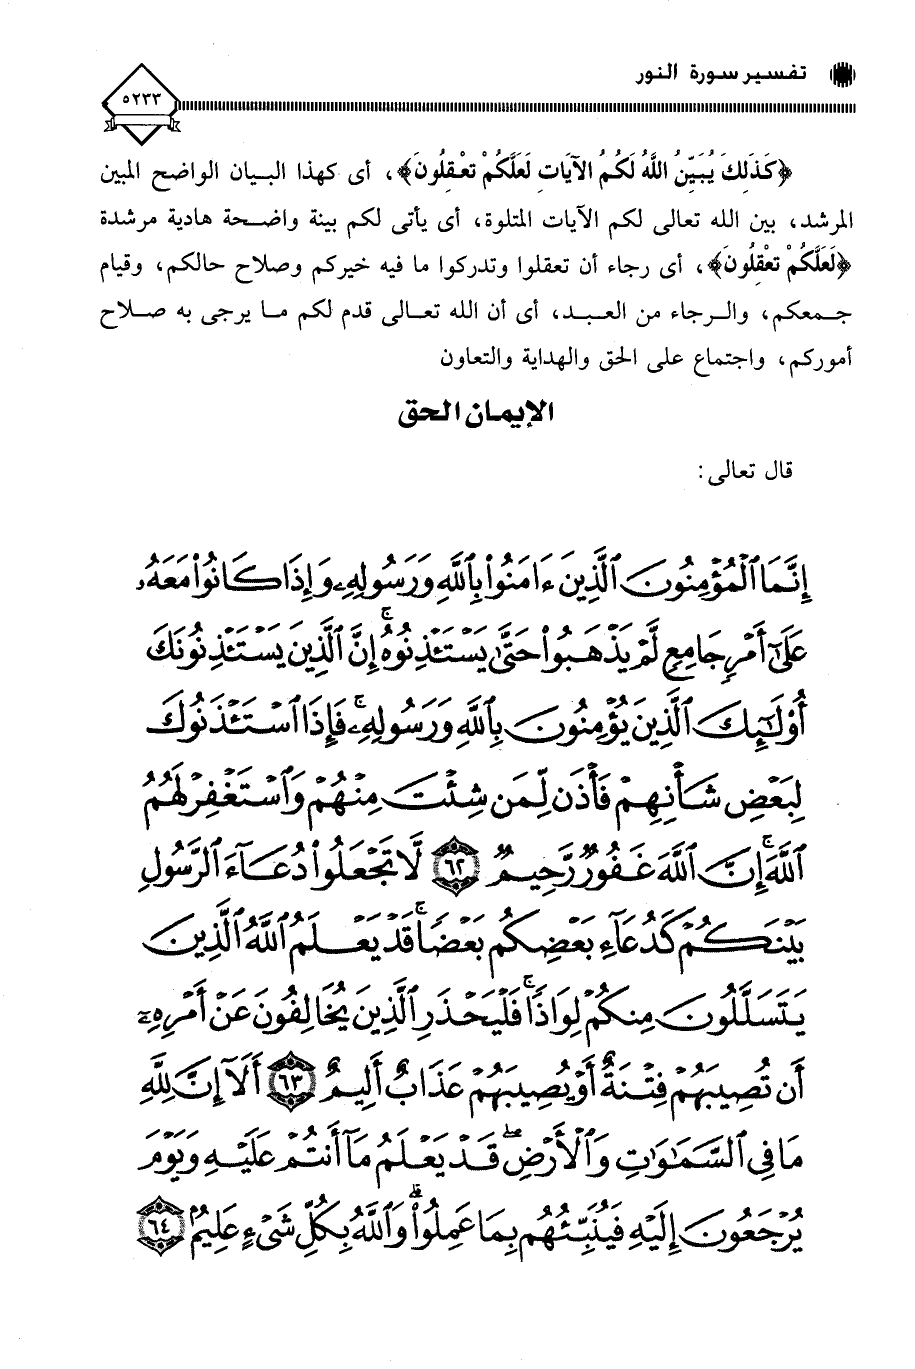 تفسير سورة النور
٥٢٣٣
﴿كَذَلِكَ يُبَيِّنُ اللَّهُ لَكُمُ الآيَاتِ لَعَلَّكُمْ تَعْقِلُونَ﴾، أى كهذا البيان الواضح المبين
المرشد، بين الله تعالى لكم الآيات المتلوة، أى يأتى لكم بينة واضحة هادية مرشدة
﴿لَعَلَّكُمْ تَعْقِلُونَ﴾، أى رجاء أن تعقلوا وتدركوا ما فيه خيركم وصلاح حالكم، وقيام
جمعكم، والرجاء من العبد، أى أن الله تعالى قدم لكم ما يرجى به صلاح
أموركم، واجتماع على الحق والهداية والتعاون
الإيمان الحق
قال تعالى:
إِنَّمَا ٱلْمُؤْمِنُونَ ٱلَّذِينَ ءَامَنُوا۟ بِٱللَّهِ وَرَسُولِهِۦ وَإِذَا كَانُوا۟ مَعَهُۥ
عَلَىٰٓ أَمْرٍ جَامِعٍ لَّمْ يَذْهَبُوا۟ حَتَّىٰ يَسْتَـْٔذِنُوهُ ۚ إِنَّ ٱلَّذِينَ يَسْتَـْٔذِنُونَكَ
أُو۟لَـٰٓئِكَ ٱلَّذِينَ يُؤْمِنُونَ بِٱللَّهِ وَرَسُولِهِۦ ۚ فَإِذَا ٱسْتَـْٔذَنُوكَ
لِبَعْضِ شَأْنِهِمْ فَأْذَن لِّمَن شِئْتَ مِنْهُمْ وَٱسْتَغْفِرْ لَهُمُ
ٱللَّهَ ۚ إِنَّ ٱللَّهَ غَفُورٌ رَّحِيمٌ ٦٢ لَّا تَجْعَلُوا۟ دُعَآءَ ٱلرَّسُولِ
بَيْنَكُمْ كَدُعَآءِ بَعْضِكُم بَعْضًا ۚ قَدْ يَعْلَمُ ٱللَّهُ ٱلَّذِينَ
يَتَسَلَّلُونَ مِنكُمْ لِوَاذًا ۚ فَلْيَحْذَرِ ٱلَّذِينَ يُخَالِفُونَ عَنْ أَمْرِهِۦٓ
أَن تُصِيبَهُمْ فِتْنَةٌ أَوْ يُصِيبَهُمْ عَذَابٌ أَلِيمٌ ٦٣ أَلَآ إِنَّ لِلَّهِ
مَا فِى ٱلسَّمَـٰوَٰتِ وَٱلْأَرْضِ ۖ قَدْ يَعْلَمُ مَآ أَنتُمْ عَلَيْهِ وَيَوْمَ
يُرْجَعُونَ إِلَيْهِ فَيُنَبِّئُهُم بِمَا عَمِلُوا۟ ۗ وَٱللَّهُ بِكُلِّ شَىْءٍ عَلِيمٌۢ ٦٤